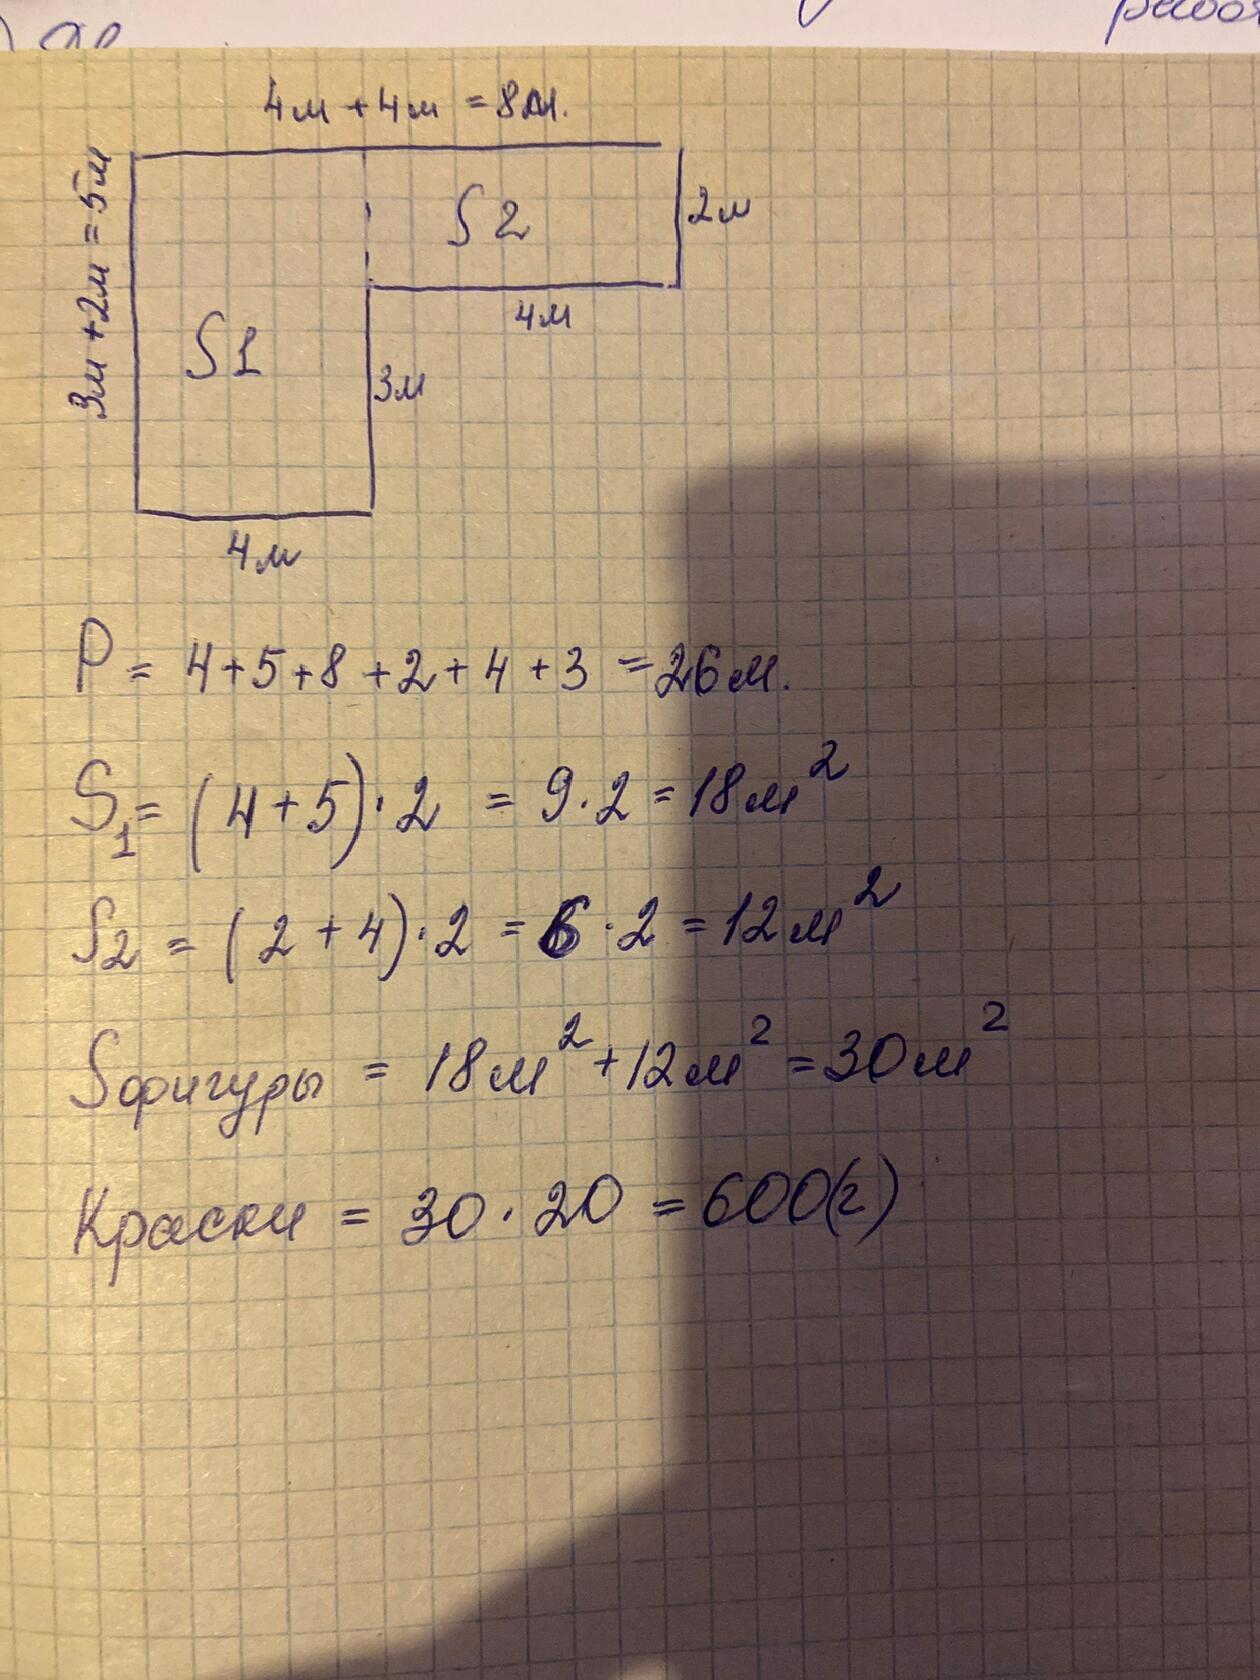 4м + 4м = 8м.
3м + 2м = 5м
S2
2м
4м
S1
3м
4м
P = 4+5+8+2+4+3 = 26м.
S1 = (4+5)·2 = 9·2 = 18м²
S2 = (2+4)·2 = 6·2 = 12м²
Sфигуры = 18м² + 12м² = 30м²
Краски = 30·20 = 600(г)